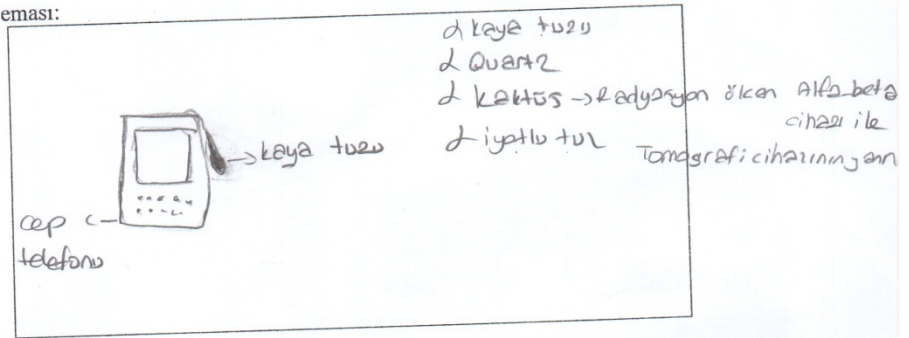 eması:
kaya tuzu
Quartz
kaktüs → Radyasyon ölçen Alfa beta
cihazı ile
iyotlu tuz
Tomografi cihazının yanın
→ kaya tuzu
cep
telefonu